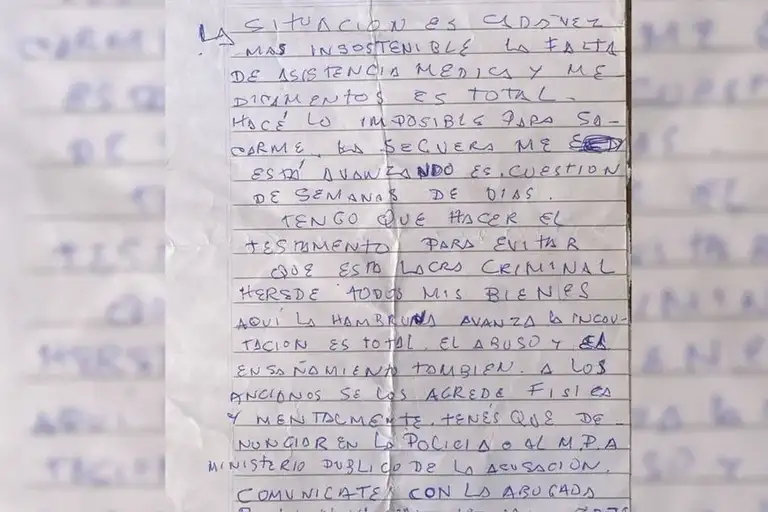 LA SITUACION ES CADA VEZ
MAS INSOSTENIBLE LA FALTA
DE ASISTENCIA MEDICA Y ME
DICAMENTOS ES TOTAL.
HACÉ LO IMPOSIBLE PARA SA-
CARME. LA SEGUERA ME
ESTÁ AVANZANDO ES CUESTION
DE SEMANAS DE DIAS.
TENGO QUE HACER EL
TESTAMENTO PARA EVITAR
QUE ESTA LACRA CRIMINAL
HEREDE TODOS MIS BIENES
AQUÍ LA HAMBRUNA AVANZA LA INCAU-
TACION ES TOTAL. EL ABUSO Y EL
ENSAÑAMIENTO TAMBIEN. A LOS
ANCIANOS SE LOS AGREDE FISICA
Y MENTALMENTE. TENÉS QUE DE-
NUNCIAR EN LA POLICIA O AL M.P.A
MINISTERIO PUBLICO DE LA ACUSACIÓN.
COMUNICATE CON LA ABOGADA